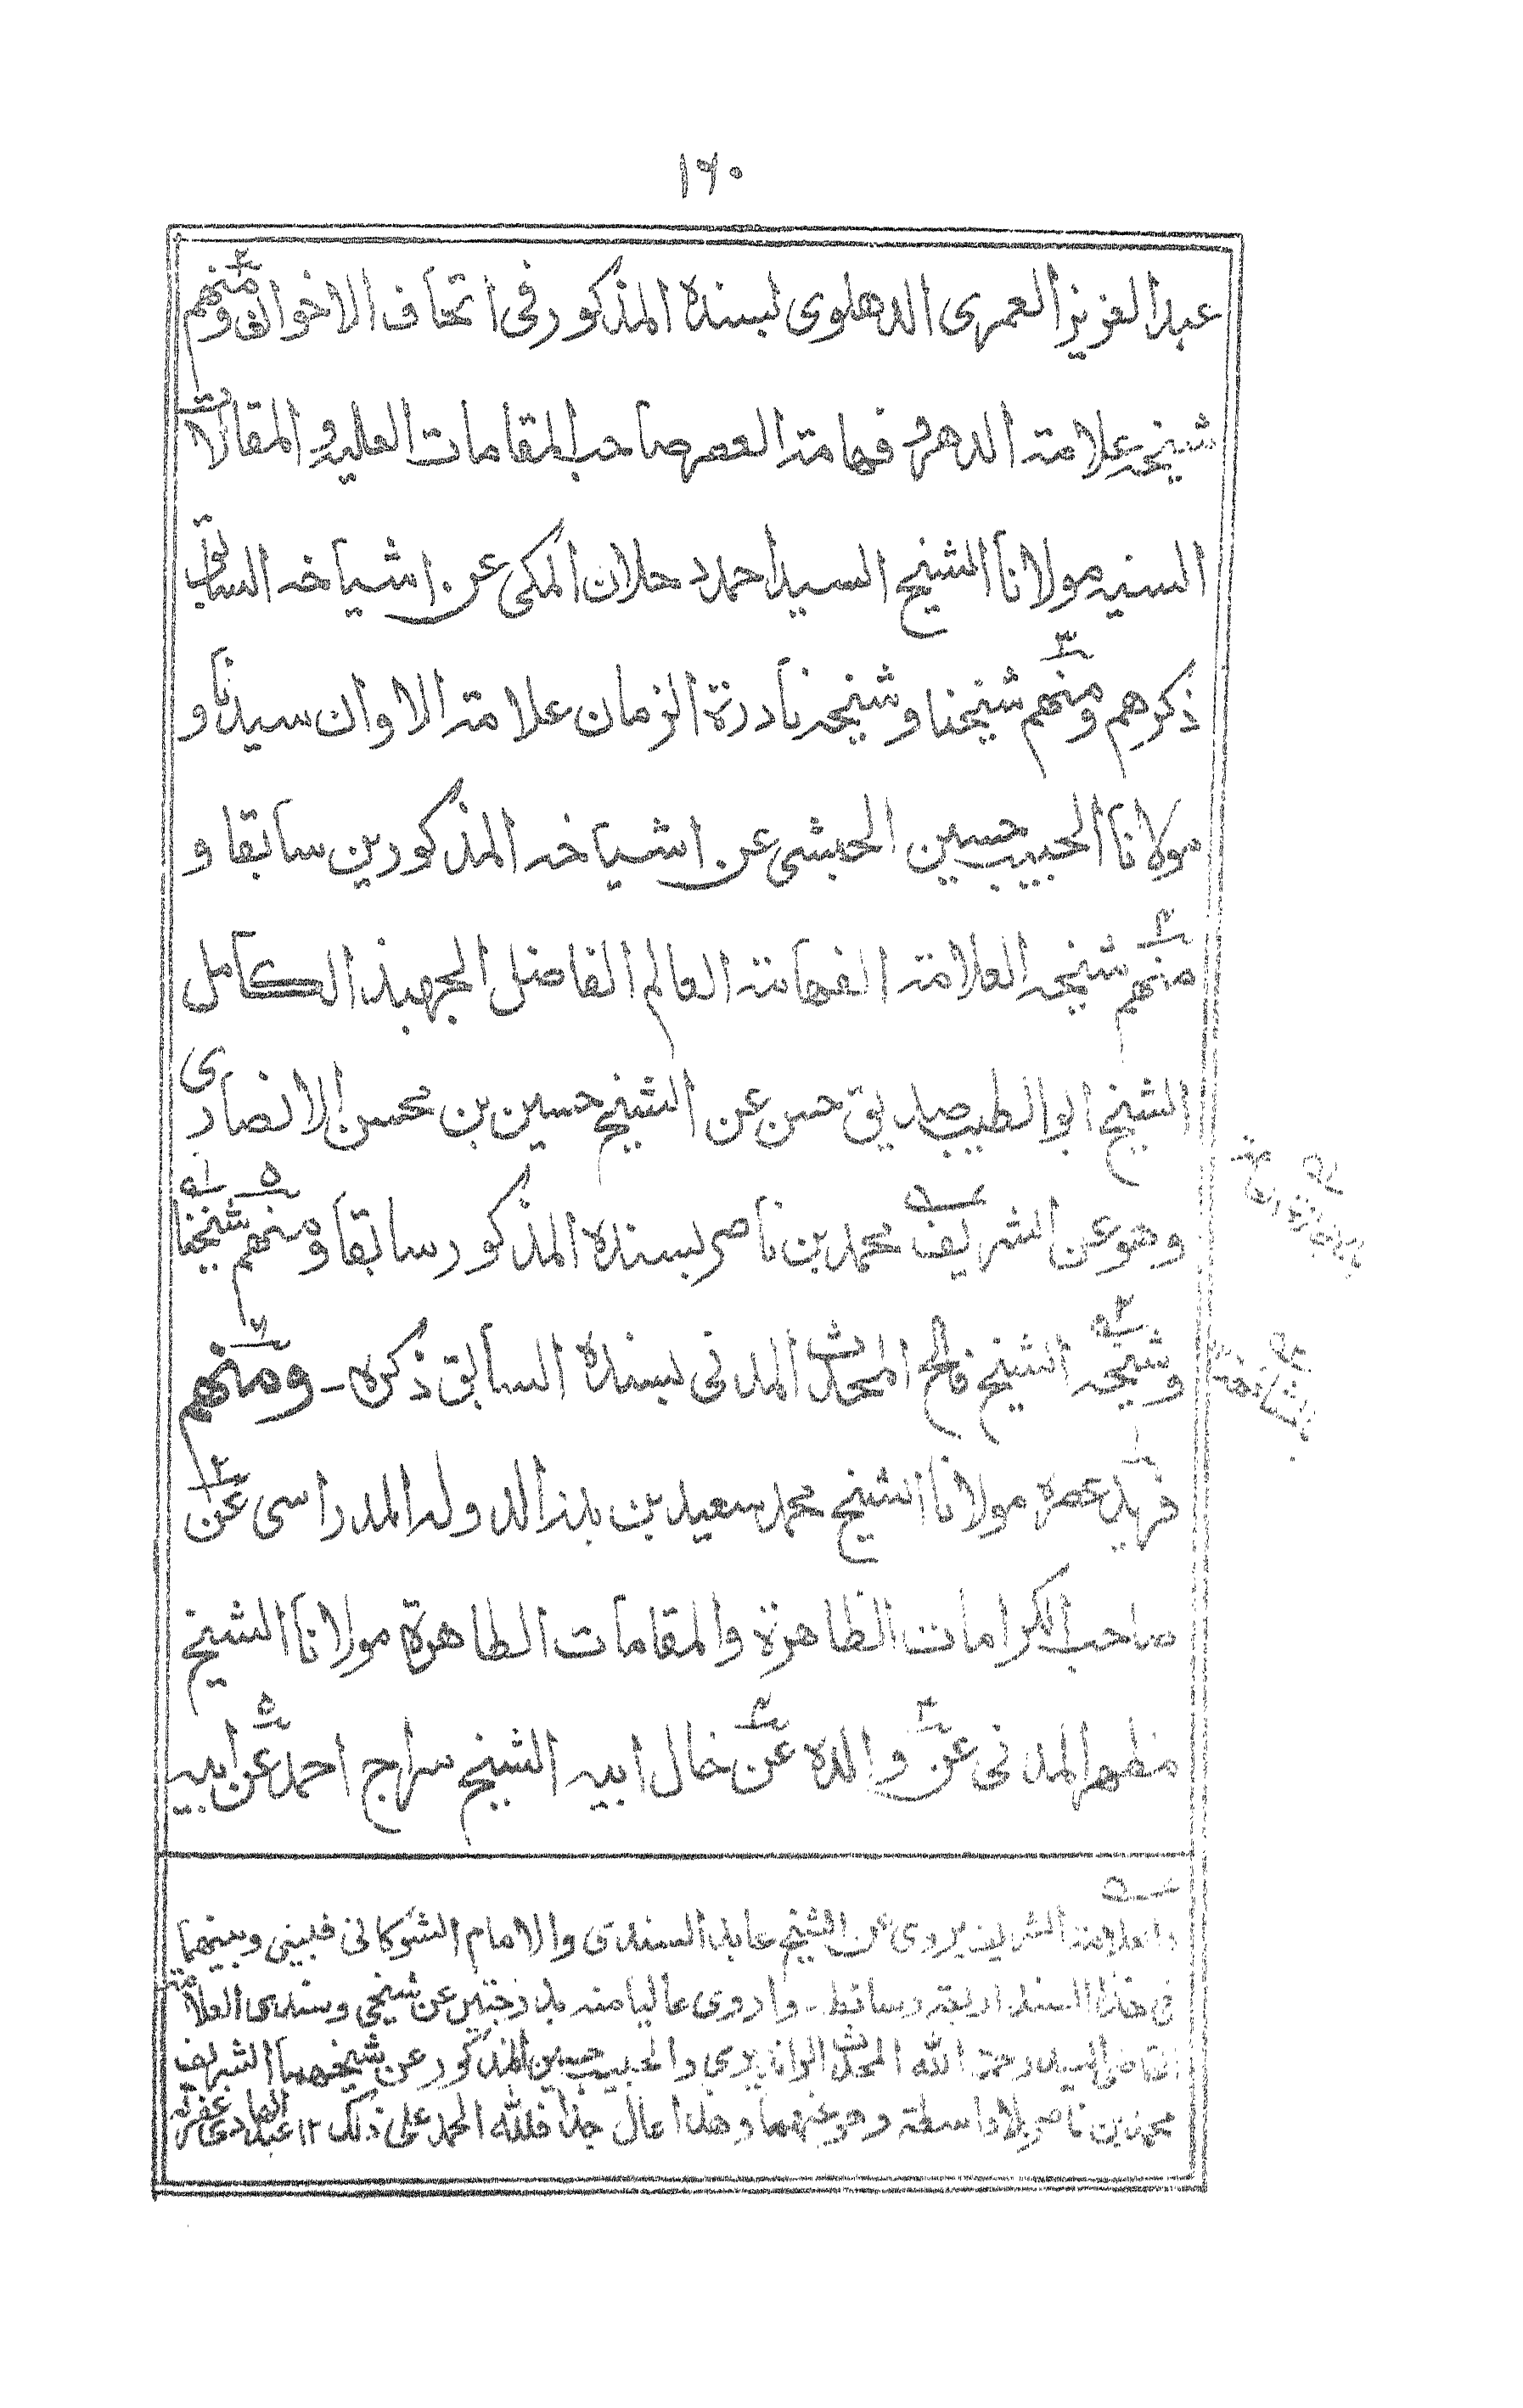 ١٦٠
عبد العزيز العمرى الدهلوى بسنده المذكور فى اتحاف الاخوان ومنهم
شيخه علامة الدهر و فهامة العصر صاحب المقامات العليه و المقالات
السنيه مولانا الشيخ السيد احمد دحلان المكى عن اشياخه السابق
ذكرهم ومنهم شيخنا وشيخه نادرة الزمان علامة الاوان سيدنا و
مولانا الحبيب حسين الحبشى عن اشياخه المذكورين سابقا و
منهم شيخه العلامة الفهامة العالم الفاضل الجهبذ الكامل
الشيخ ابوالطيب صديق حسن عن الشيخ حسين بن محسن الانصارى
وهو عن الشريف محمد بن ناصر بسنده المذكور سابقا ومنهم شيخنا
وشيخه الشيخ فالح المحدث المدنى بسنده السابق ذكره - ومنهم
فريد عصره مولانا الشيخ محمد سعيد بن بدر الدوله المدراسى عن
صاحب الكرامات الظاهرة والمقامات الطاهرة مولانا الشيخ
مظهر المدنى عن والده عن خال ابيه الشيخ سراج احمد عن ابيه
والعلامة الشريف يروى عن الشيخ عابد السندى والامام الشوكانى فبينى وبينهما
فى هذا السند اربعة وسائط - واروى عاليا منه بدرجتين عن شيخى وسندى العلامة
القاضى السيد رحمة الله المحدث الرانديرى والحبيب حسين المذكور عن شيخهما الشريف
محمد بن ناصر بلا واسطة وهو عنهما وهذا عال جدا فلله الحمد على ذلك ١٢ عبد الهادى غفر له